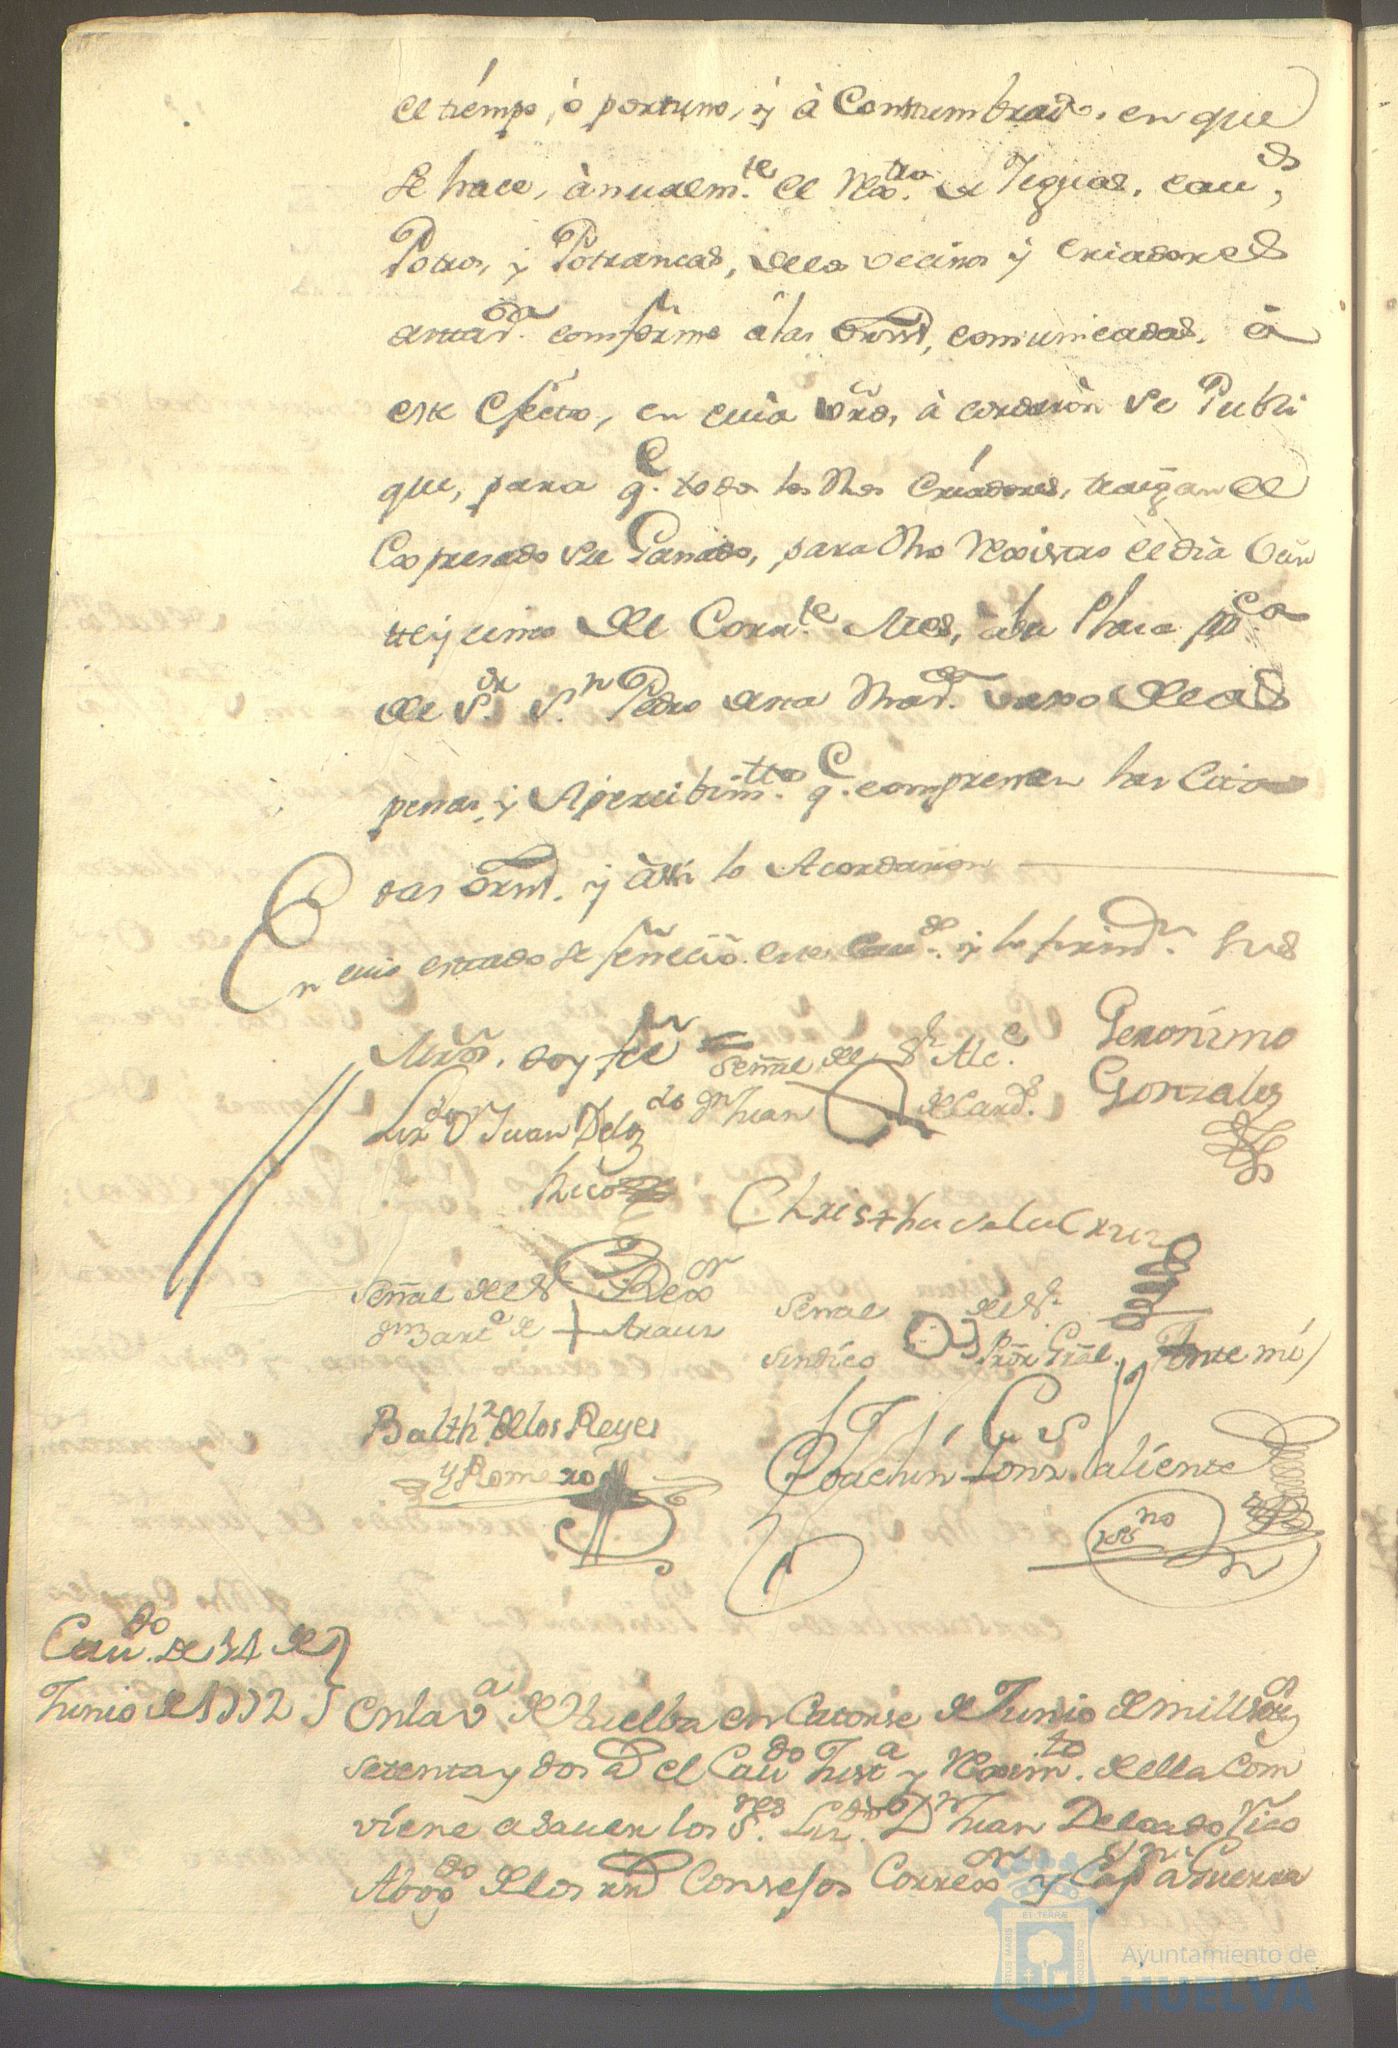 el tiempo, ò portuno, y à Constumbrado, en que
se hace, ànualem.te el Rex.tro de Yeguas, cau.os,
Potros, y Potrancas, delos vecinos y criadores
desta conforme àlas orns, comunicadas, à
este efecto, en cuia à cordaròn se Publi
que, para q.e todos los dhos Criadores, traigan el
expresado su Ganado, para dho Rexistro el dia vein
tteycinco del Corr.te Mes, àla Plaza pp.ca
de S.or S.n Pedro desta vaxo delas
penas, y Apercibim.tto q.e comprenen las Cita
das orns. y àssi lo Acordaron
En cuio estado se feneciò este Cau.do y lo firm.n sus
Mrds. doy fee
Señal del S.r Alc.e
Geronimo
Gonzales
Liz.do D.n Juan Delg.do
Rico
dn Juan de Card.
Christhu de la Cruz
Señal del S.r Rex.or
dn Bart.e de + Araus
Señal del S.r
Sindico Pror Gral.
Ante mi
Balth.r delos Reyes
y Romero
Joachin Gonz. Valiente
ss.no
Cau.do de 14 de
Junio de 1772
En la V.a de Huelba en Catorse de Junio de mill setez.s
setenta y dos a.s el Cau.do Just.a y Rexim.to della Com
viene a sauer los S.res Liz.do D.n Juan Delgado Rico
Abog.do delos rrs Consejos Correx.or y Cap.n à Guerra
Ayuntamiento de
HUELVA